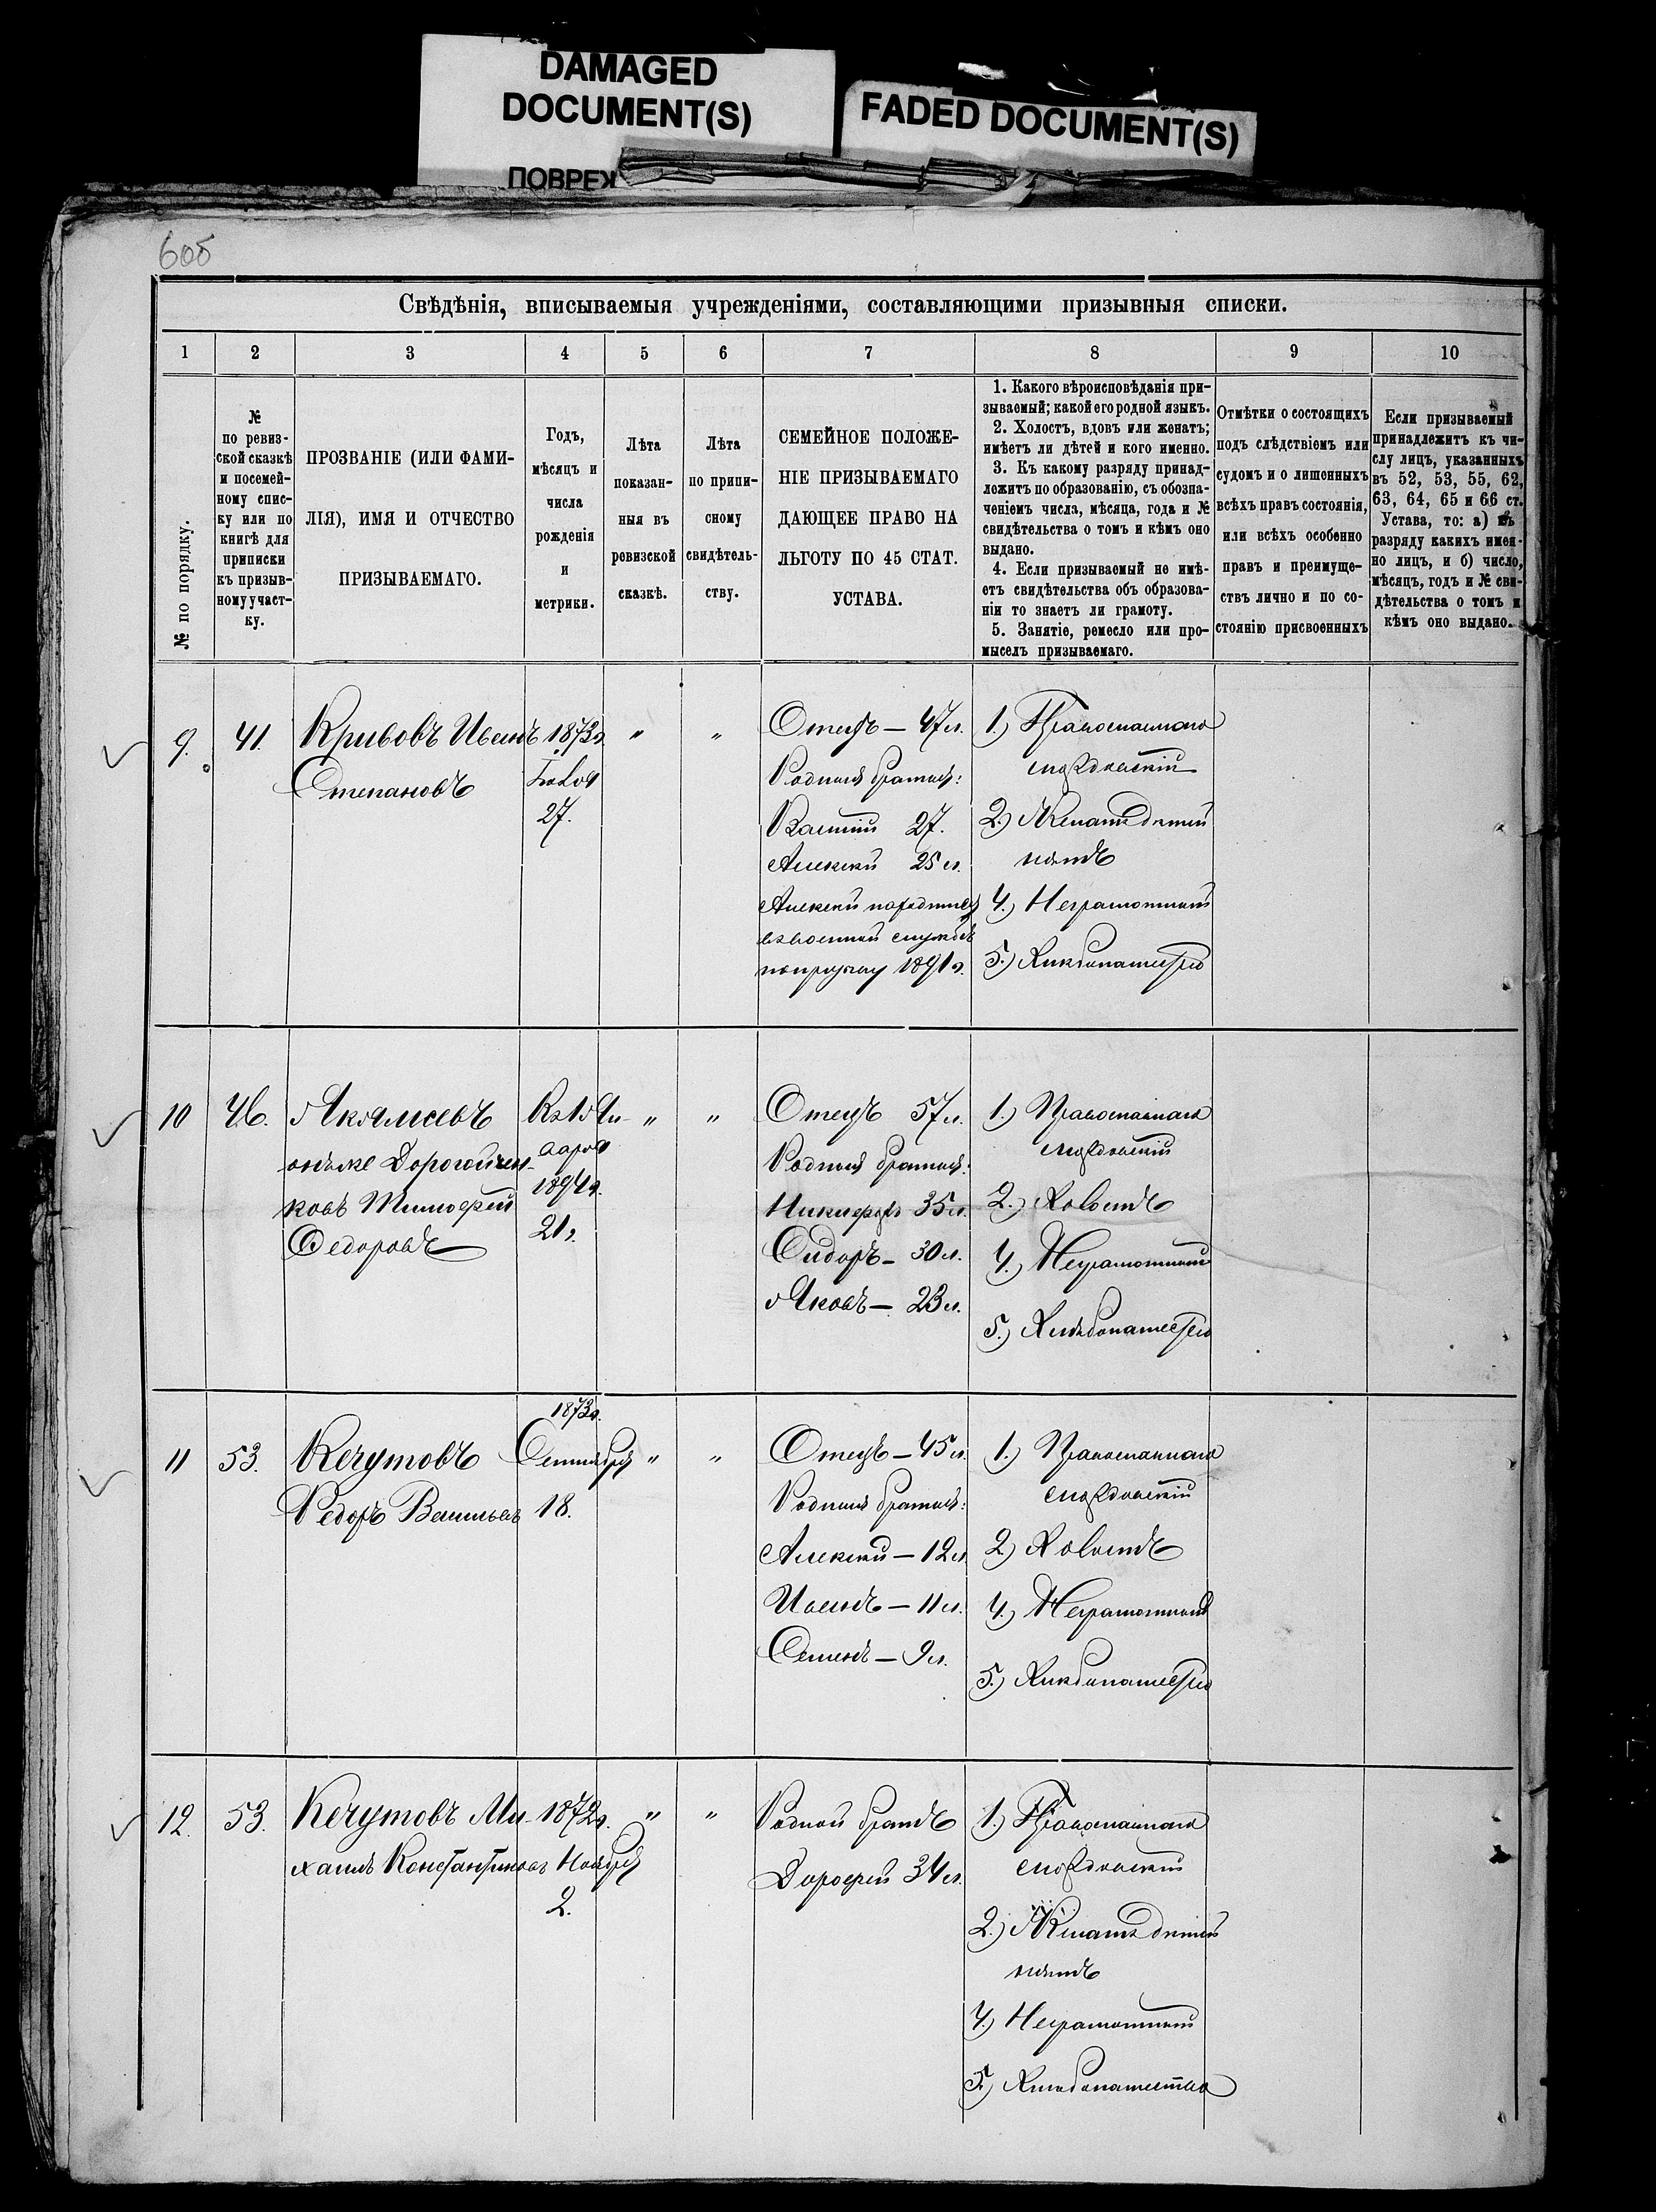 DAMAGED
DOCUMENT(S)
FADED DOCUMENT(S)
ПОВРЕЖ
605
Свѣдѣнія, вписываемыя учрежденіями, составляющими призывныя списки.
1 2 3 4 5 6 7 8 9 10
№ по порядку.
№
по ревиз-
ской сказкѣ
и посемей-
ному спис-
ку или по
книгѣ для
приписки
къ призыв-
ному участ-
ку.
ПРОЗВАНІЕ (ИЛИ ФАМИ-
ЛІЯ), ИМЯ И ОТЧЕСТВО
ПРИЗЫВАЕМАГО.
Годъ,
мѣсяцъ и
числа
рожденія
и
метрики.
Лѣта
показан-
ныя въ
ревизской
сказкѣ.
Лѣта
по припи-
сному
свидѣтель-
ству.
СЕМЕЙНОЕ ПОЛОЖЕ-
НІЕ ПРИЗЫВАЕМАГО
ДАЮЩЕЕ ПРАВО НА
ЛЬГОТУ ПО 45 СТАТ.
УСТАВА.
1. Какого вѣроисповѣданія при-
зываемый; какой его родной языкъ.
2. Холостъ, вдовъ или женатъ;
имѣетъ ли дѣтей и кого именно.
3. Къ какому разряду принад-
лежитъ по образованію, съ обозна-
ченіемъ числа, мѣсяца, года и №
свидѣтельства о томъ и кѣмъ оно
выдано.
4. Если призываемый не имѣ-
етъ свидѣтельства объ образова-
ніи то знаетъ ли грамоту.
5. Занятіе, ремесло или про-
мыселъ призываемаго.
Отмѣтки о состоящихъ
подъ слѣдствіемъ или
судомъ и о лишенныхъ
всѣхъ правъ состоянія,
или всѣхъ особенно
правъ и преимуще-
ствъ лично и по со-
стоянію присвоенныхъ
Если призываемый
принадлежитъ къ чи-
слу лицъ, указанныхъ
въ 52, 53, 55, 62,
63, 64, 65 и 66 ст.
Устава, то: а) къ
разряду какихъ имен-
но лицъ, и б) число,
мѣсяцъ, годъ и № сви-
дѣтельства о томъ и
кѣмъ оно выдано.
9. 41. Кривовъ Иванъ
Степановъ
1873г.
27.
" "
Отецъ — 47 л.
Родныя братья:
27.
Алексей 25 л.
Алексей находится
въ военной службѣ
по призыву 1891 г.
1.) Православнаго
мордовскій
2.) Женатъ дѣтей
нѣтъ
4.) Неграмотный
5.) Хлѣбопашество
10 46.
онъ же
Тимофей
Федоровъ
1894г.
21 г.
" "
Отецъ 57 л.
Родныя братья:
Никифоръ 35 л.
Сидоръ — 30 л.
Яковъ — 23 л.
1.) Православнаго
мордовскій
2.) Холостъ
4.) Неграмотный
5.) Хлѣбопашество
11 53. Кечутовъ
Федоръ Васильевъ
1873г.
Сентября
18.
" "
Отецъ — 45 л.
Родныя братья:
Алексей — 12 л.
Иванъ — 11 л.
Семенъ — 9 л.
1.) Православнаго
мордовскій
2.) Холостъ
4.) Неграмотный
5.) Хлѣбопашество
12. 53. Кечутовъ Ми-
хаилъ Константиновъ
1872г.
Ноября
2.
" "
Родной братъ
Дорофей 34 л.
1.) Православнаго
мордовскій
2.) Женатъ дѣтей
нѣтъ
4.) Неграмотный
5.) Хлѣбопашество